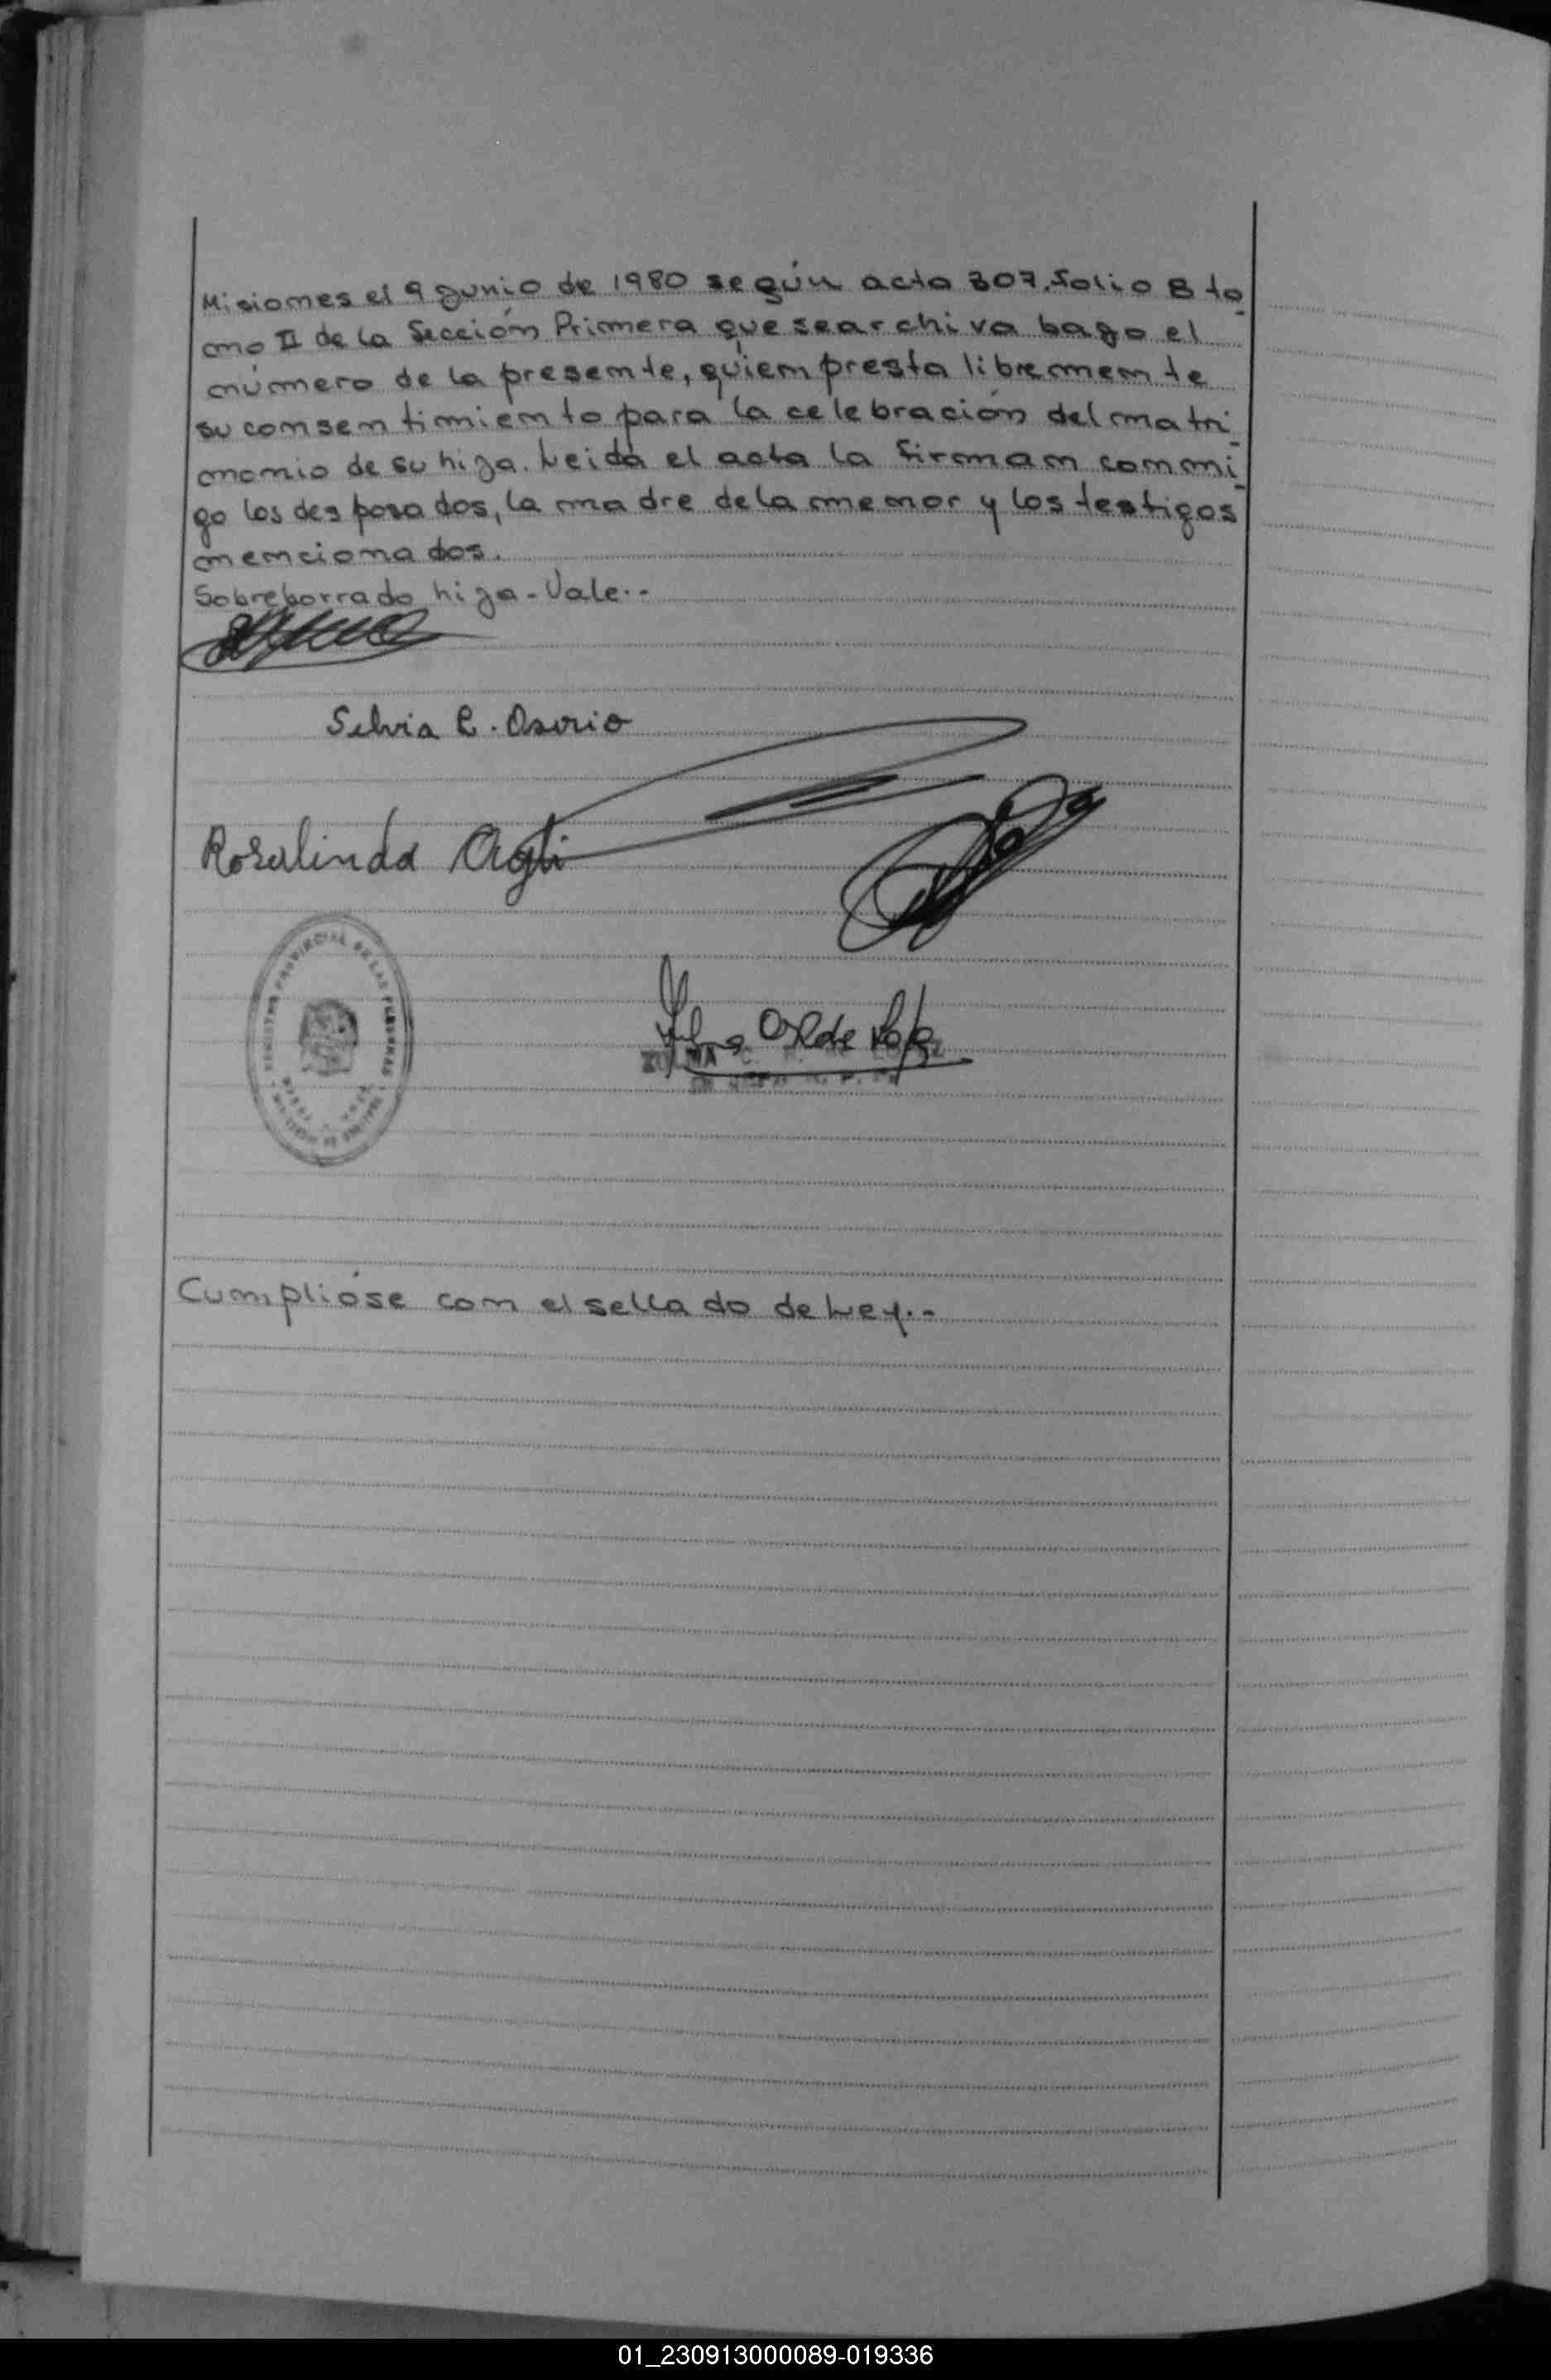 Misiones el 9 junio de 1980 según acta 307. folio 8 to
mo II de la Sección Primera que se archiva bajo el
número de la presente, quien presta libremente
su consentimiento para la celebración del matri
monio de su hija. Leida el acta la firman conmi
go los desposados, la madre de la menor y los testigos
mencionados.
Sobreborrado hija - Vale.-
Silvia C. Osorio
Rosalinda
REGISTRO PROVINCIAL DE LAS PERSONAS
Cumplióse con el sellado de Ley.-
01_230913000089-019336